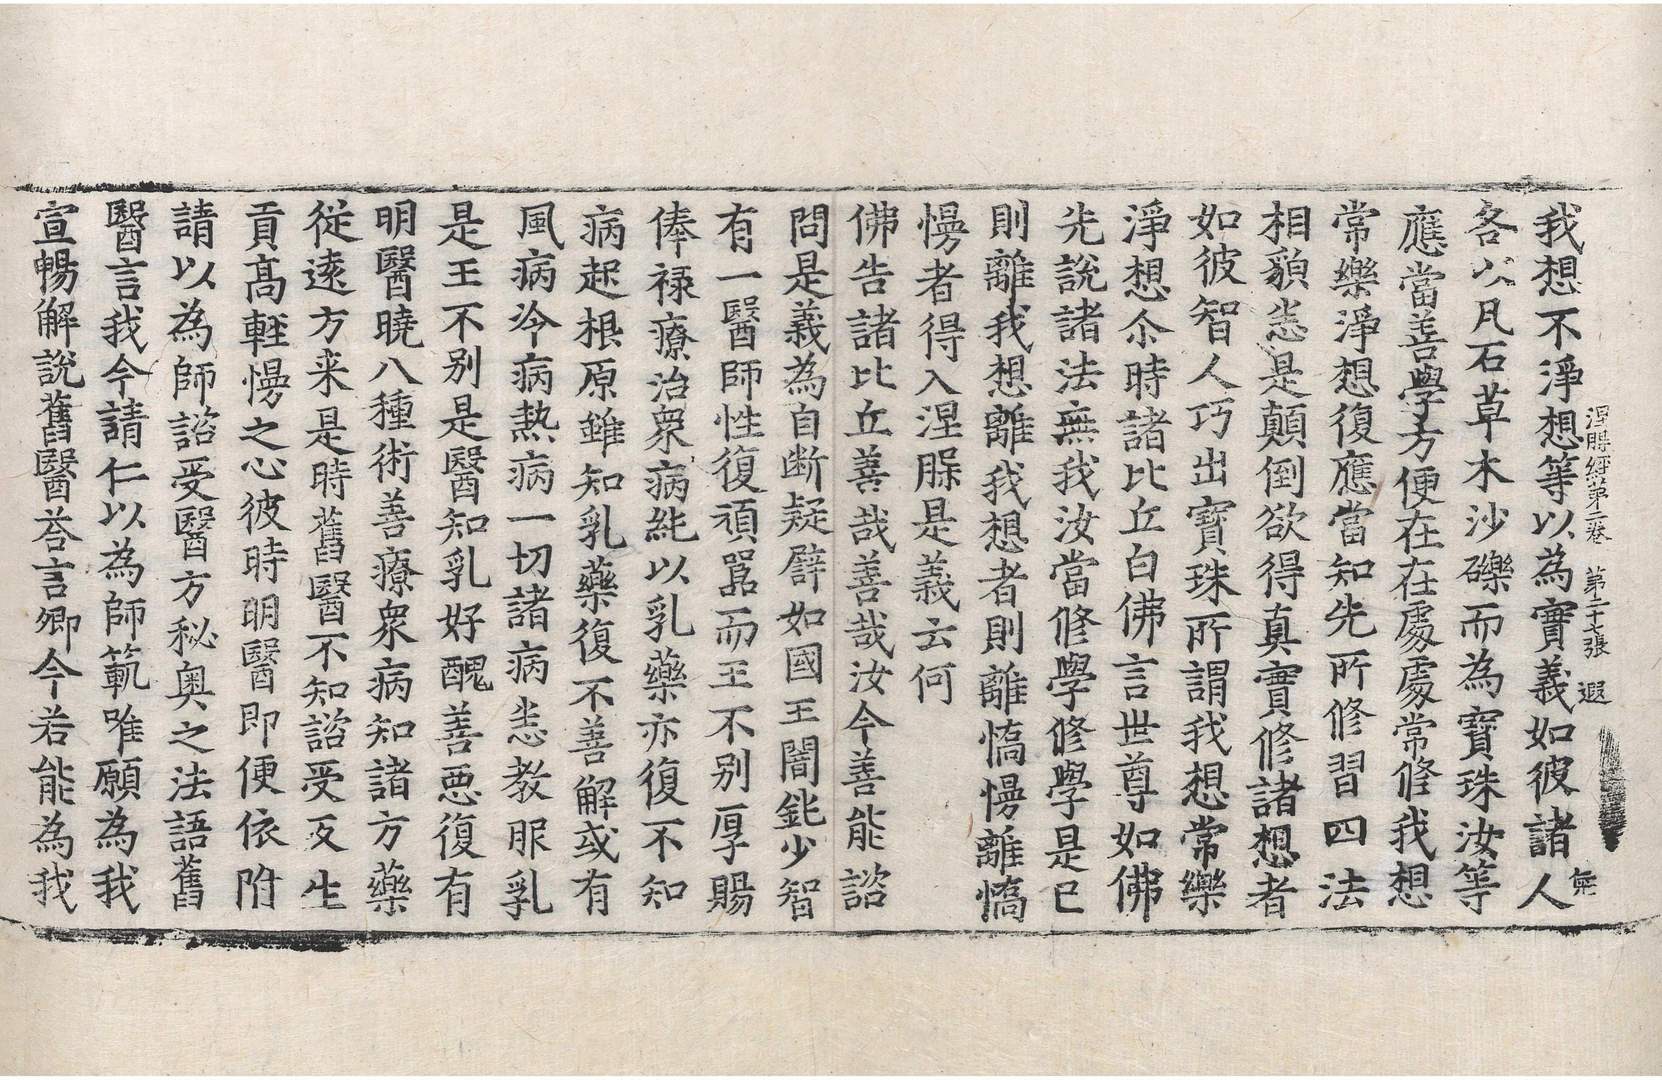 涅槃經第二卷 第二十七張 遐
我想不淨想等以為實義如彼諸人
各以凡石草木沙礫而為寶珠汝等
應當善學方便在在處處常修我想
常樂淨想復應當知先所修習四法
相貌悉是顛倒欲得真實修諸想者
如彼智人巧出寶珠所謂我想常樂
淨想尒時諸比丘白佛言世尊如佛
先說諸法無我汝當修學修學是已
則離我想離我想者則離憍慢離憍
慢者得入涅槃是義云何
佛告諸比丘善哉善哉汝今善能諮
問是義為自断疑譬如國王闇鈍少智
有一醫師性復頑嚚而王不別厚賜
俸禄療治衆病純以乳藥亦復不知
病起根原雖知乳藥復不善解或有
風病冷病熱病一切諸病悉教服乳
是王不別是醫知乳好醜善惡復有
明醫曉八種術善療衆病知諸方藥
従遠方来是時舊醫不知諮受反生
貢髙輕慢之心彼時明醫即便依附
請以為師諮受醫方秘奥之法語舊
醫言我今請仁以為師範唯願為我
宣暢解說舊醫荅言卿今若能為我